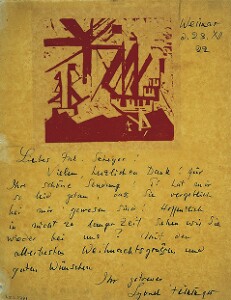 Weimar
d. 23. XII
22
Liebes Frl.
Vielen, herzlichen Dank! für
Ihr schöne Sendung. Es tat mir
so leid, dass Sie vergeblich
bei mir gewesen sind. Hoffentlich
in nicht zu langer Zeit sehen wir Sie
wieder bei uns! Mit den
allerbesten Weihnachtsgrüßen und
guten Wünschen
Ihr getreuer
Lyonel Feininger